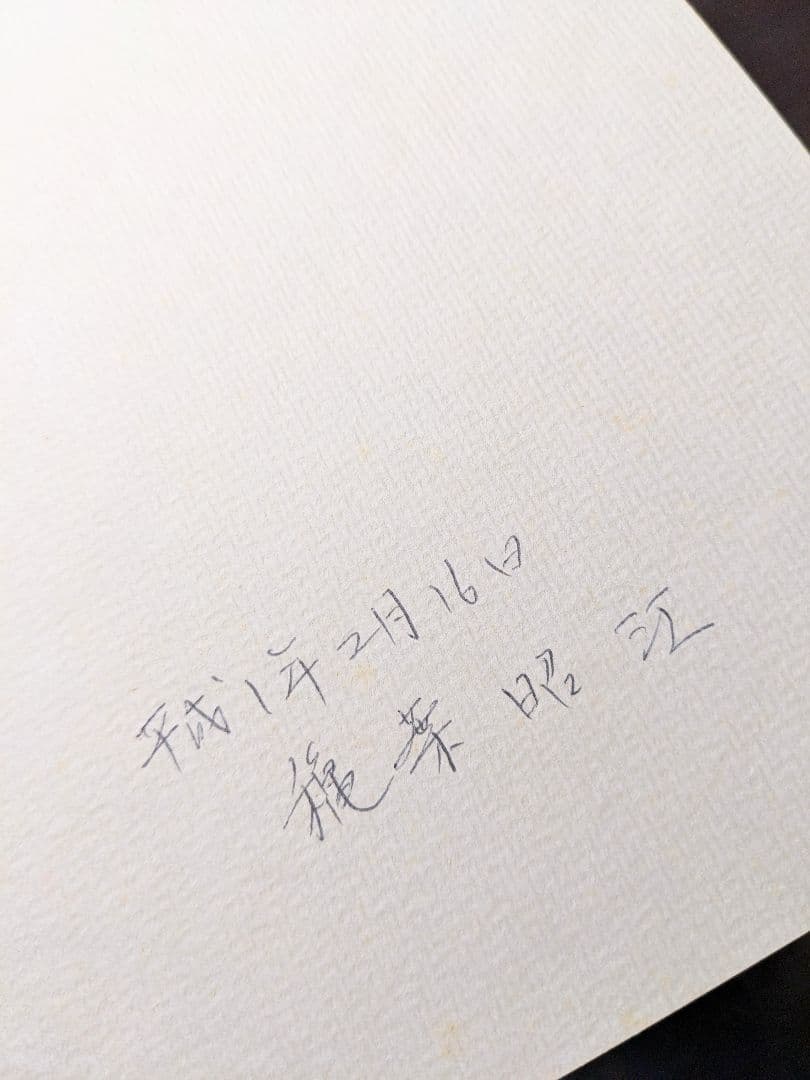 平成1年2月16日
穐葉昭江